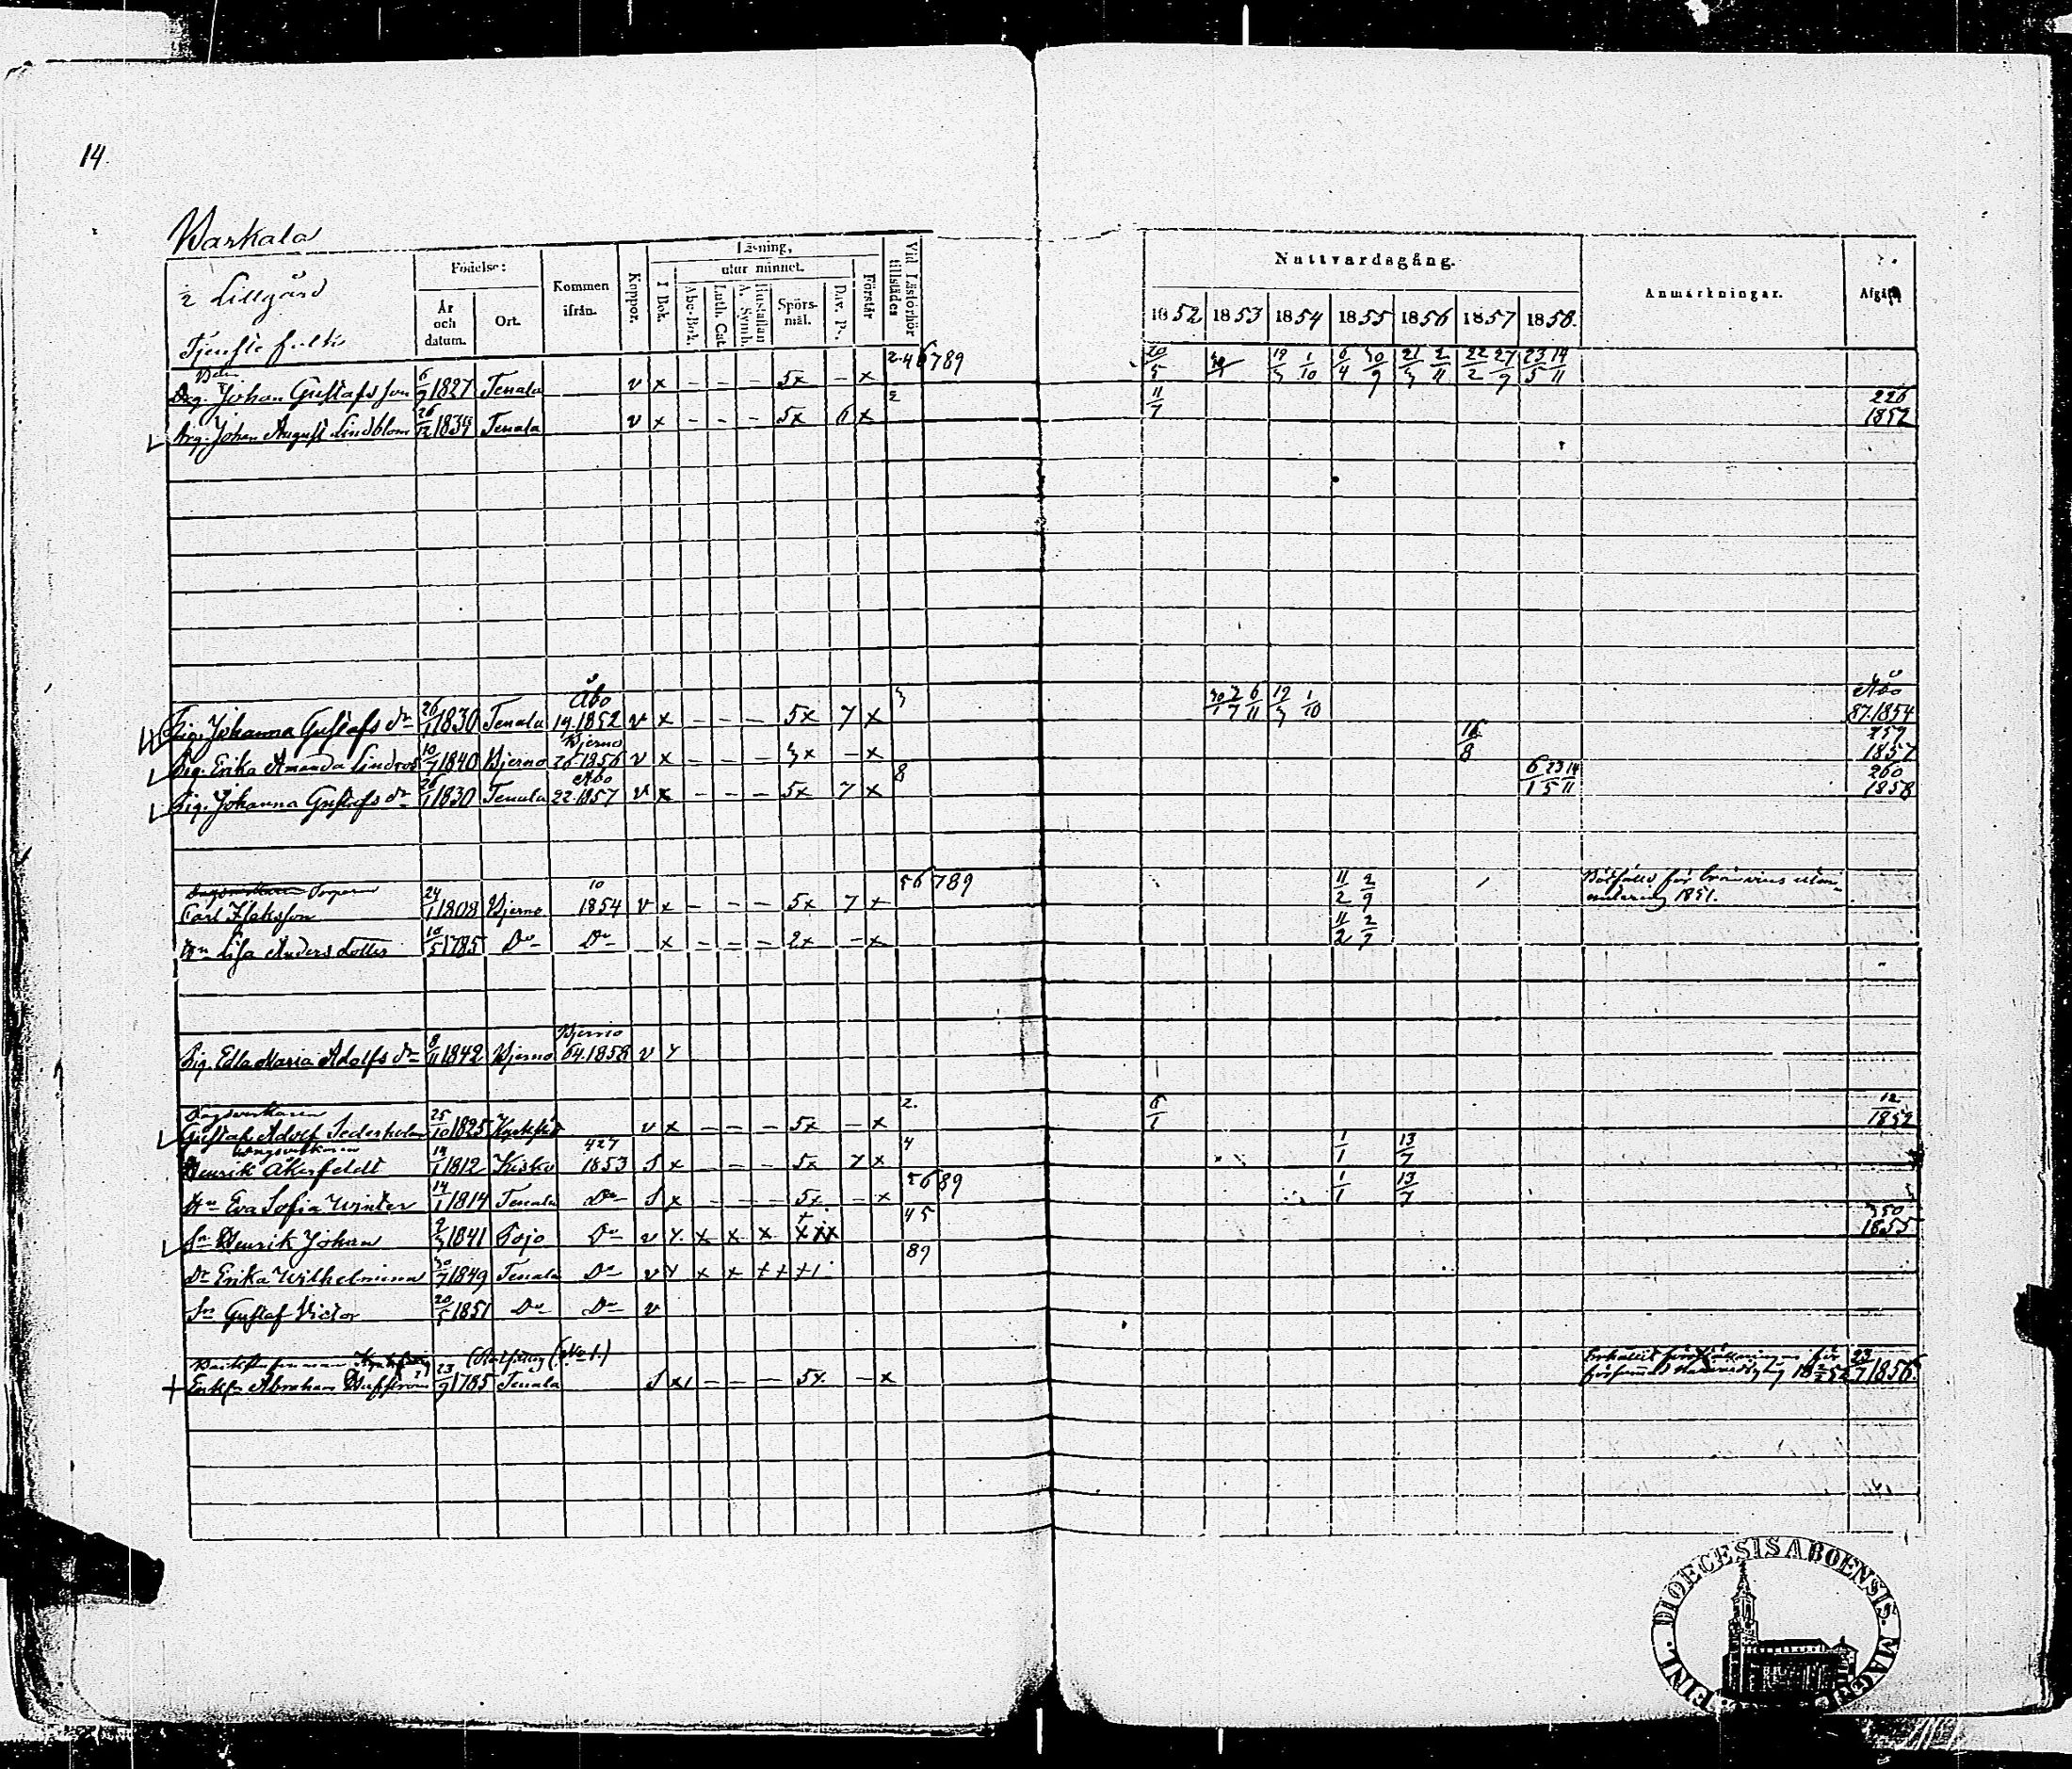 14.
Warkala
½ Lillgård
Tjenste folk
Födelse:
År och datum.
Ort.
Kommen ifrån.
Koppor.
Läsning,
utur minnet.
I Bok.
Abc-Bok.
Luth. Cat.
A. Symb.
Hustaflan
Spörs-mål.
Dav. Ps.
Förstår
Vid Läsförhör tillstädes
Nattvardsgång.
1852 1853 1854 1855 1856 1857 1858.
Anmärkningar.
Afgått
Drg. Johan Gustafsson 6/9 1827 Tenala v x - - - 5x - x 2.46789 20/5 19/3 1/10 6/4 30/9 21/3 2/11 22/2 27/9 23/5 14/11
Drg. Johan August Lindblom 26/12 1834 Tenala v x - - - 5x 6 x 2 11/7 226 1852
Pig. Johanna Gustafs dr 26/1 1830 Tenala Åbo 14.1852 v x - - - 5x 7 x 3 30/1 2/7 6/11 12/3 1/10 Åbo 87.1854
Pig. Erika Amanda Lindros 10/7 1840 Bjerno Bjerno 26.1856 v x - - - 3x - x 16/8 259 1857
Pig. Johanna Gustafs dr 26/1 1830 Tenala Åbo 22.1857 v x - - - 5x 7 x 8 6/1 23/5 14/11 260 1858
Torparen
Carl Isaksson 24/1 1808 Bjerno 10 1854 v x - - - 5x 7 x 56789 11/2 2/9 Bötfälld för bränvins 1851.
Hu Lisa Anders dotter 10/5 1785 Do Do x - - - 2x - x 11/2 2/9
Pig. Edla Maria Adolfs dr 8/11 1842 Bjerno Bjerno 64.1858 v x
Dagsverkaren
Gustaf Adolf Sederholm 25/10 1825 v x - - - 5x - x 2. 6/1 12 1852
Henrik Åkerfeldt 14/1 1812 Kisko 427 1853 S x - - - 5x 7 x 4 1/1 13/7
Hu Eva Sofia Winter 14/1 1814 Tenala Do S x - - - 5x - x 5689 1/1 13/7
Sn Henrik Johan 2/3 1841 Pojo Do v x x x x xxx 45 350 1855
Dr Erika Wilhelmina 30/7 1849 Tenala Do v x x x x x x 89
Sn Gustaf Victor 20/5 1851 Do Do v
(No 1.)
Enkln Abraham 23/9 1785 Tenala S x - - - 5x - x Erhållit för nattvardsgång 23/7 1856.
FINL. DIOECESIS ABOENSIS. MAGN.